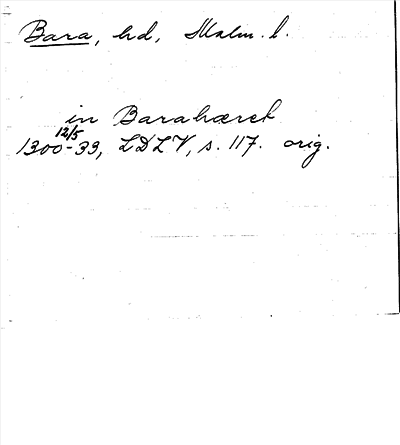 Bara, hd, Malm. l.
in Barahæret
12/5
1300-39, LDLV, s. 117. orig.